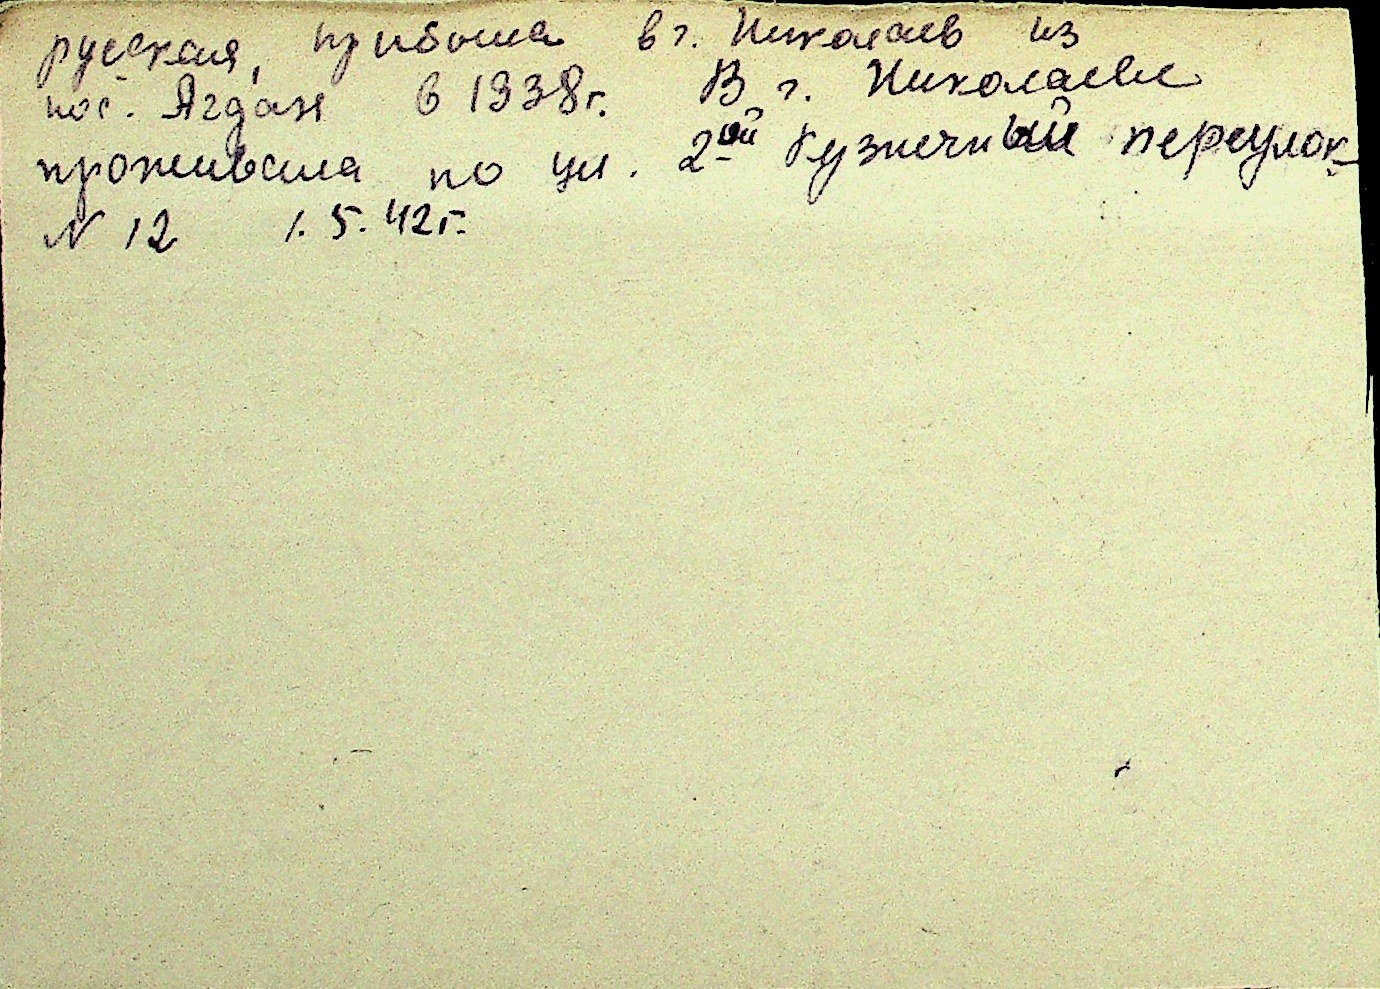 русская, прибыла в г. Николаев из
пос. Агдан в 1938 г. В г. Николаеве
проживала по ул. 2ой Кузнечный переулок
N 12 1. 5. 42 г.